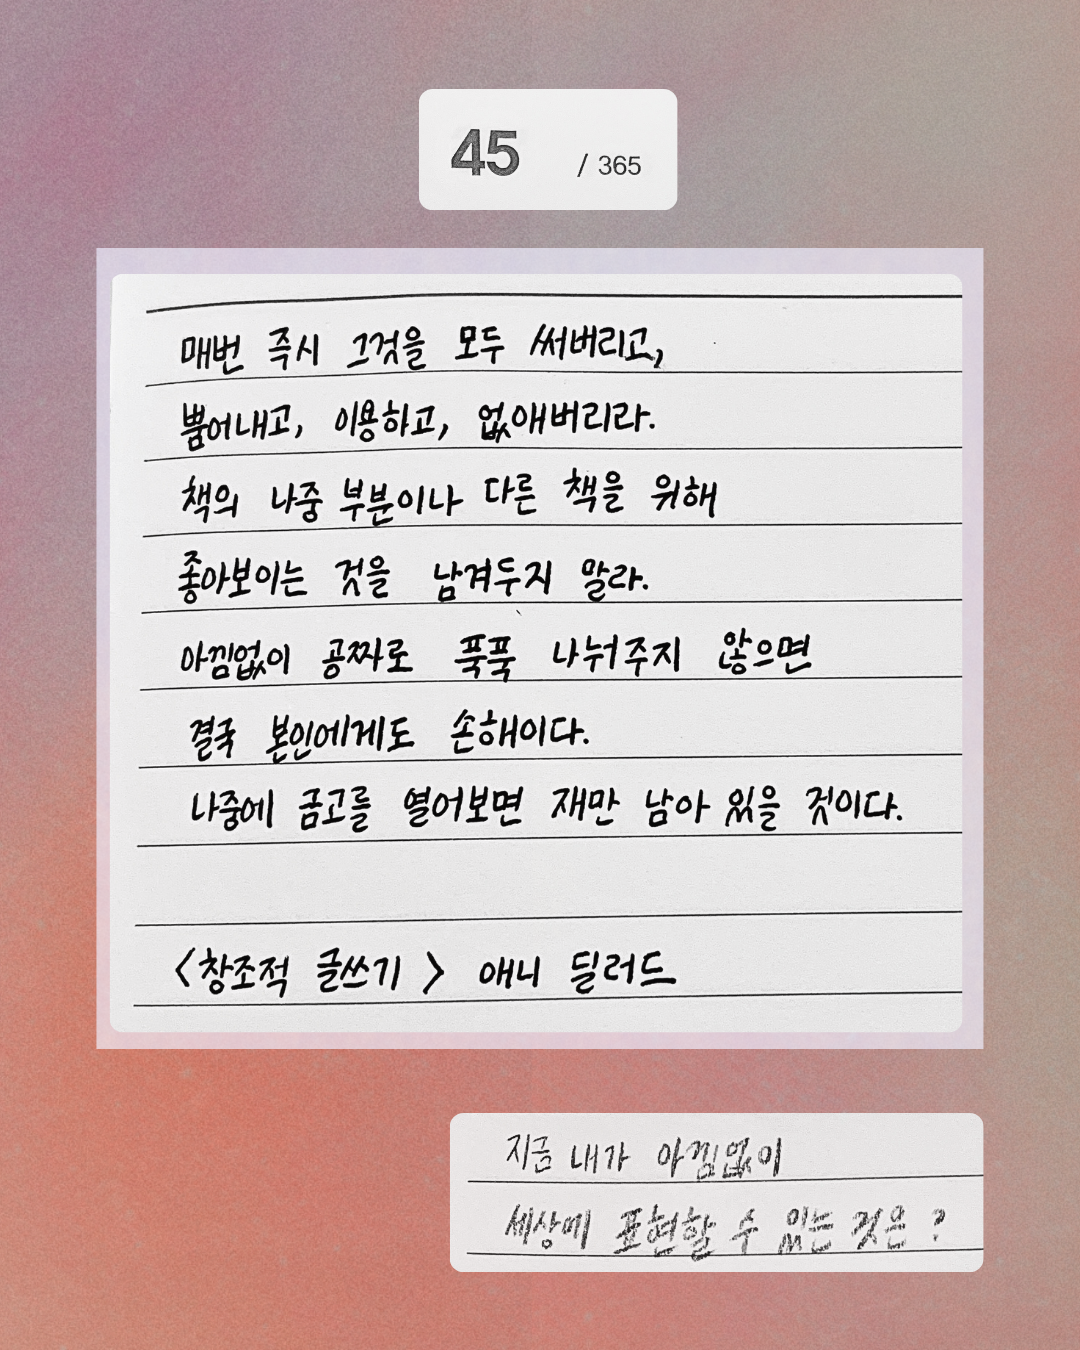 45 / 365
매번 즉시 그것을 모두 써버리고,
뿜어내고, 이용하고, 없애버리라.
책의 나중 부분이나 다른 책을 위해
좋아보이는 것을 남겨두지 말라.
아낌없이 공짜로 푹푹 나눠주지 않으면
결국 본인에게도 손해이다.
나중에 금고를 열어보면 재만 남아 있을 것이다.
<창조적 글쓰기> 애니 딜러드
지금 내가 아낌없이
세상에 표현할 수 있는 것은?